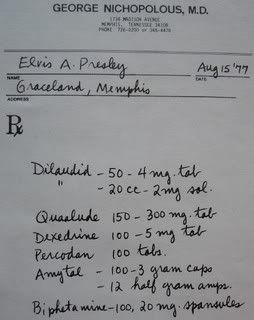 GEORGE NICHOPOLOUS, M.D.
1734 MADISON AVENUE
MEMPHIS, TENNESSEE 38104
PHONE 726-0200 or 346-4478
Elvis A. Presley Aug 15 '77
NAME DATE
Graceland, Memphis
ADDRESS
Rx
Dilaudid - 50 - 4 mg. tab
" - 20 cc - 2 mg sol.
Quaalude 150 - 300 mg. tab
Dexedrine 100 - 5 mg tab
Percodan 100 tabs.
Amytal - 100 - 3 gram caps
- 12 half gram amps.
Biphetamine - 100, 20 mg. spansules